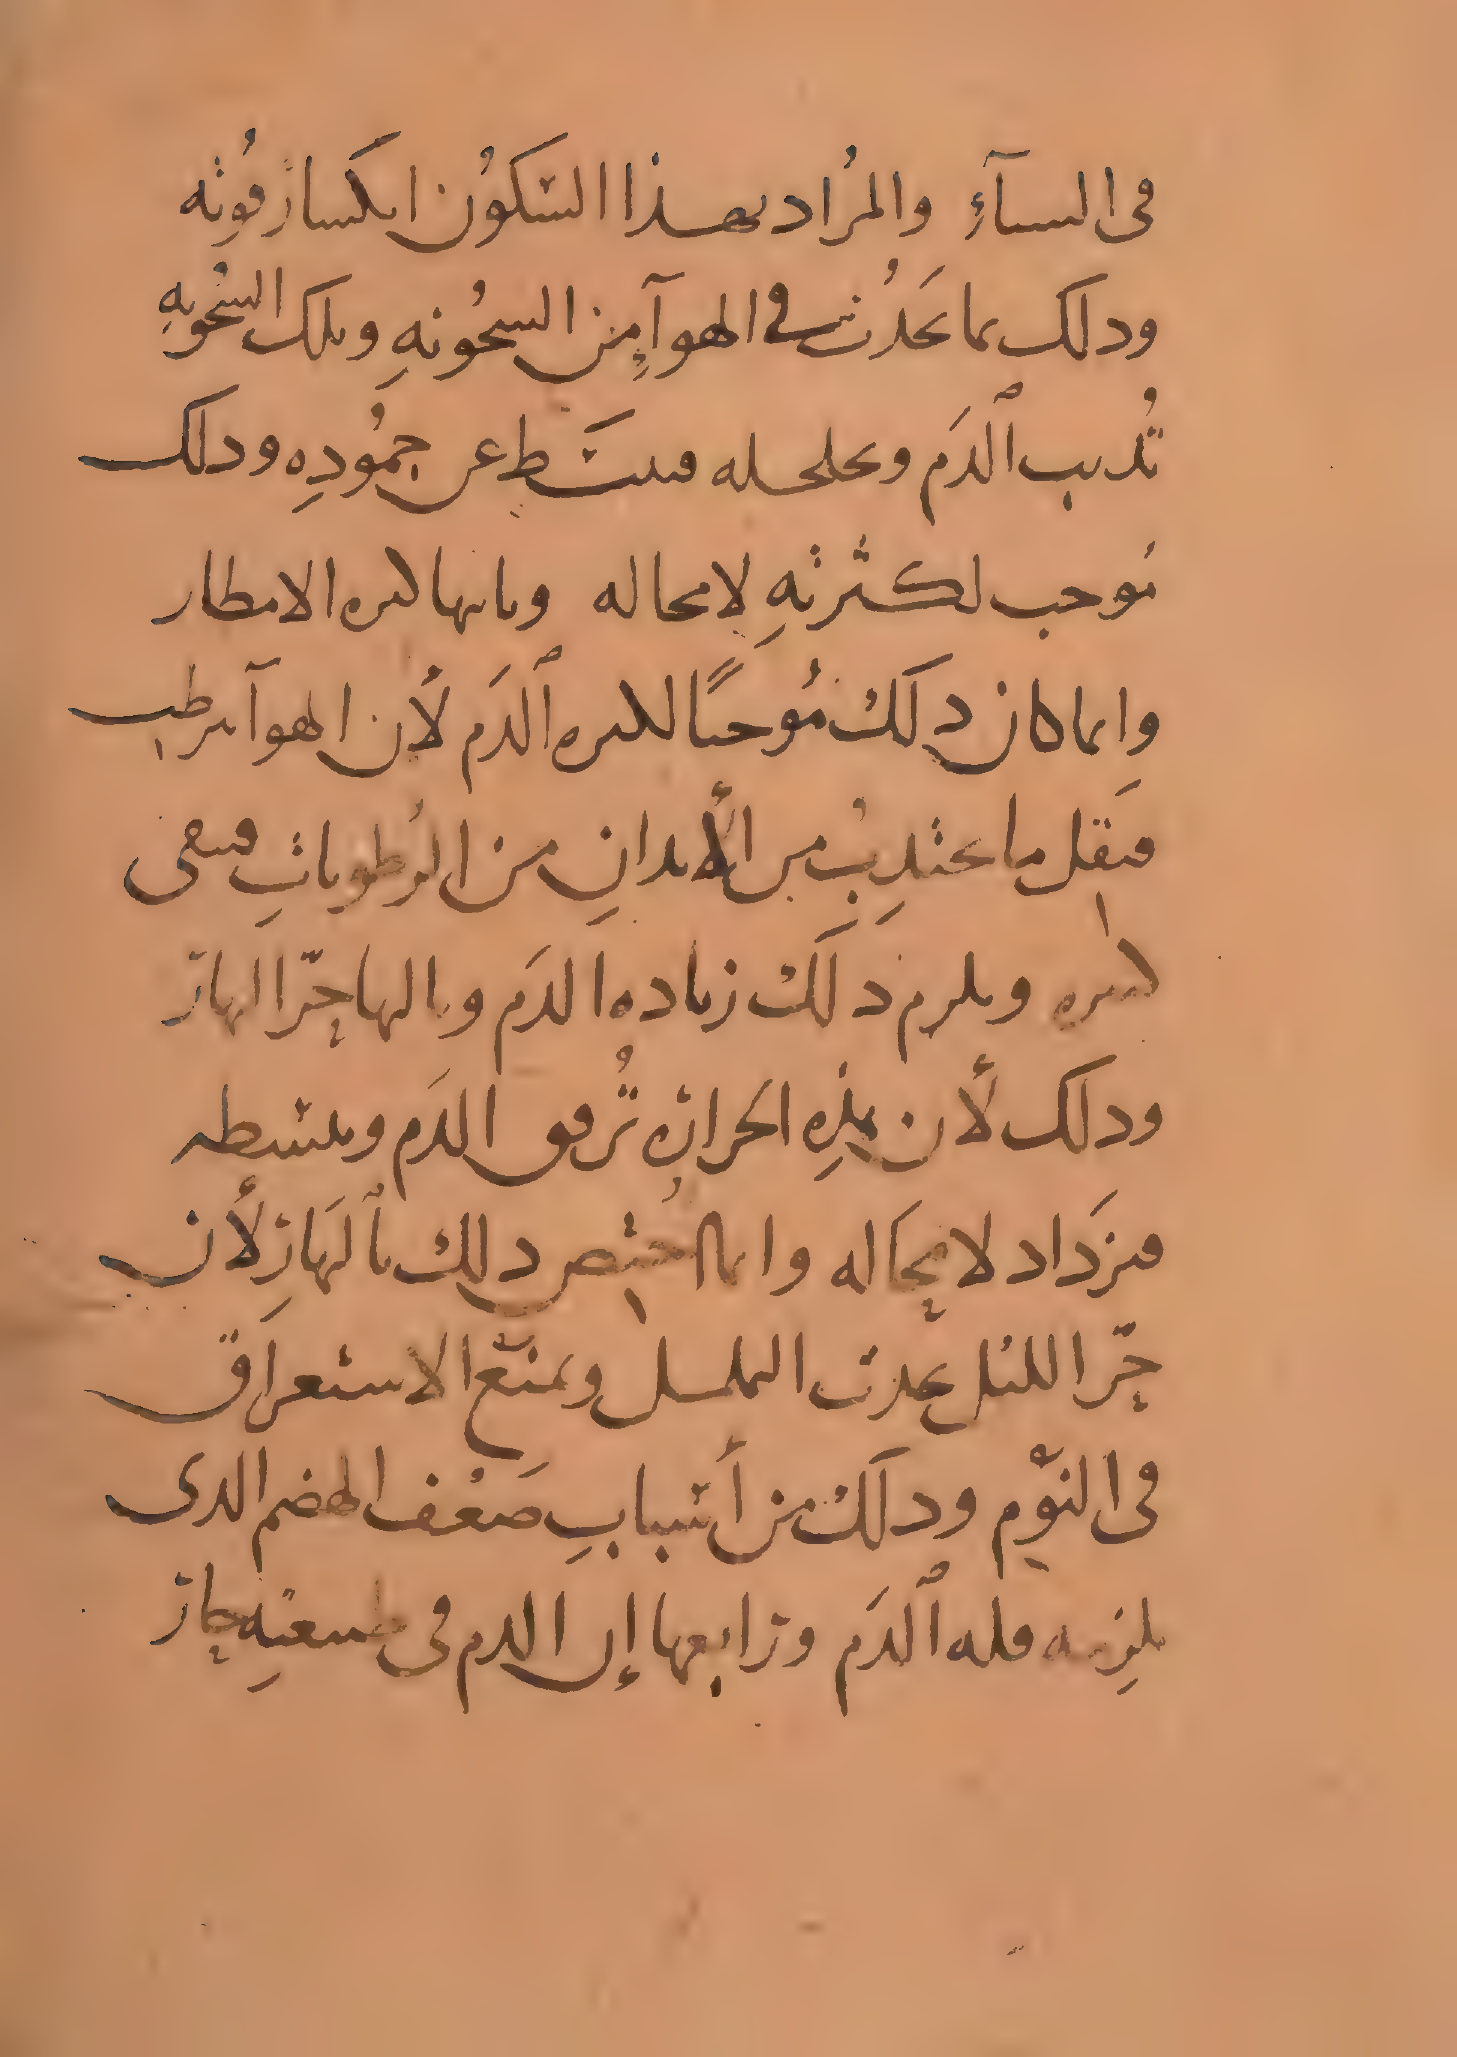 في الشتآءِ والمرُاد بهذا السّكوُن انكسار قوُتِه
وذلك بما يَحدُث في الهوآءِ من السخُونهِ وتلك السخُونهِ
تُذيب ٱلدَم وتخلخله فينَشّط عن جموُدِه وذلك
مُوجب لكثرتهِ لا محاله وثانيها كثره الامطار
وانما كان ذلك مُوجباً لكثره ٱلدَم لأن الهوآ يرطب
فيَقل ما يجتذِبُ من الأبدانِ من الرُطوباتِ فتبقى
كثيره ويلزم ذلك زياده الدَم وثالثها حرّ النهار
وذلك لأن هذِه الحراره تُرقق الدَم وتنشّطه
فيَزداد لا محَاله وانما اختُص ذلك بٱلنَهارِ لأن
حرّ الليل يحدث التململ ويمنعّ الاستغراق
في النوّمِ وذلك من أسّبابِ ضَعُف الهضم الذى
يلزِمه قله ٱلدَم ورابعها إن الدم في طبيعتِه حار